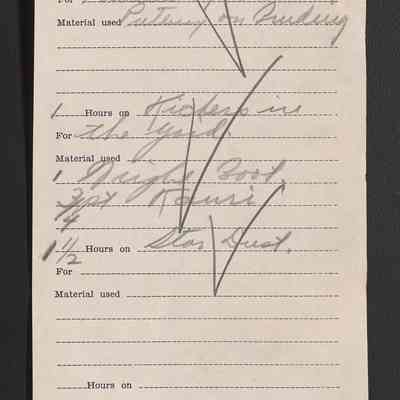 For
Material used Puttying on Bruding
1 Hours on Kickers in
For the Yard.
Material used
1 Bright Boot.
3/4 pt Kauri
1 1/2 Hours on Star Dust.
For
Material used
Hours on